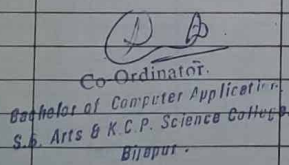 Co-Ordinator.
Bachelor of Computer Application.
S.B. Arts & K.C.P. Science College
Bijapur.